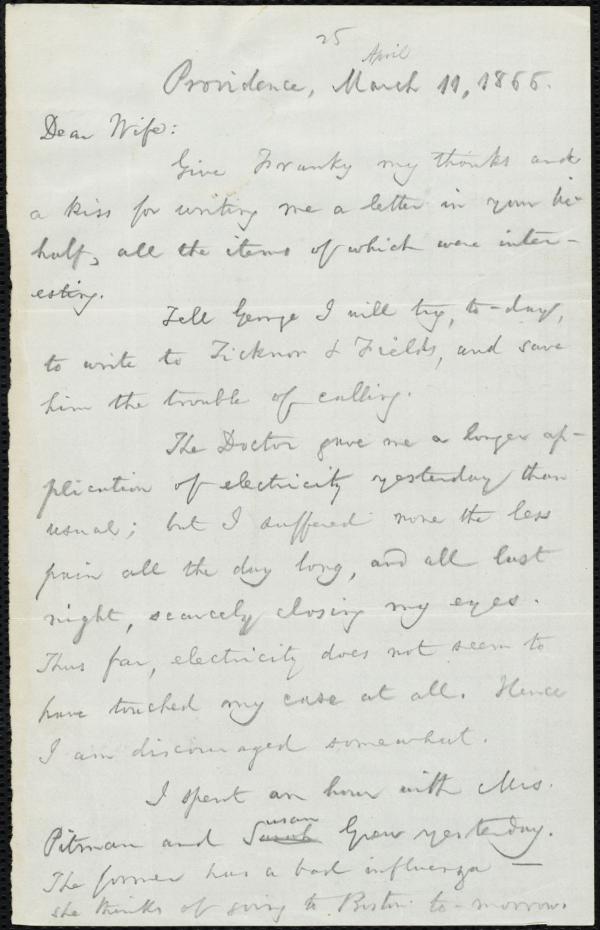 25
April
Providence, March 11, 1866.
Dear Wife:
Give Franky my thanks and
a kiss for writing me a letter in your be-
half, all the items of which were inter-
esting.
Tell George I will try, to-day,
to write to Ticknor & Fields, and save
him the trouble of calling.
The Doctor gave me a longer ap-
plication of electricity yesterday than
usual; but I suffered none the less
pain all the day long, and all last
night, scarcely closing my eyes.
Thus far, electricity does not seem to
have touched my case at all. Hence
I am discouraged somewhat.
I spent an hour with Mrs.
Pitman and Susan Grew yesterday.
The former has a bad influenza —
she thinks of going to Boston to-morrow.